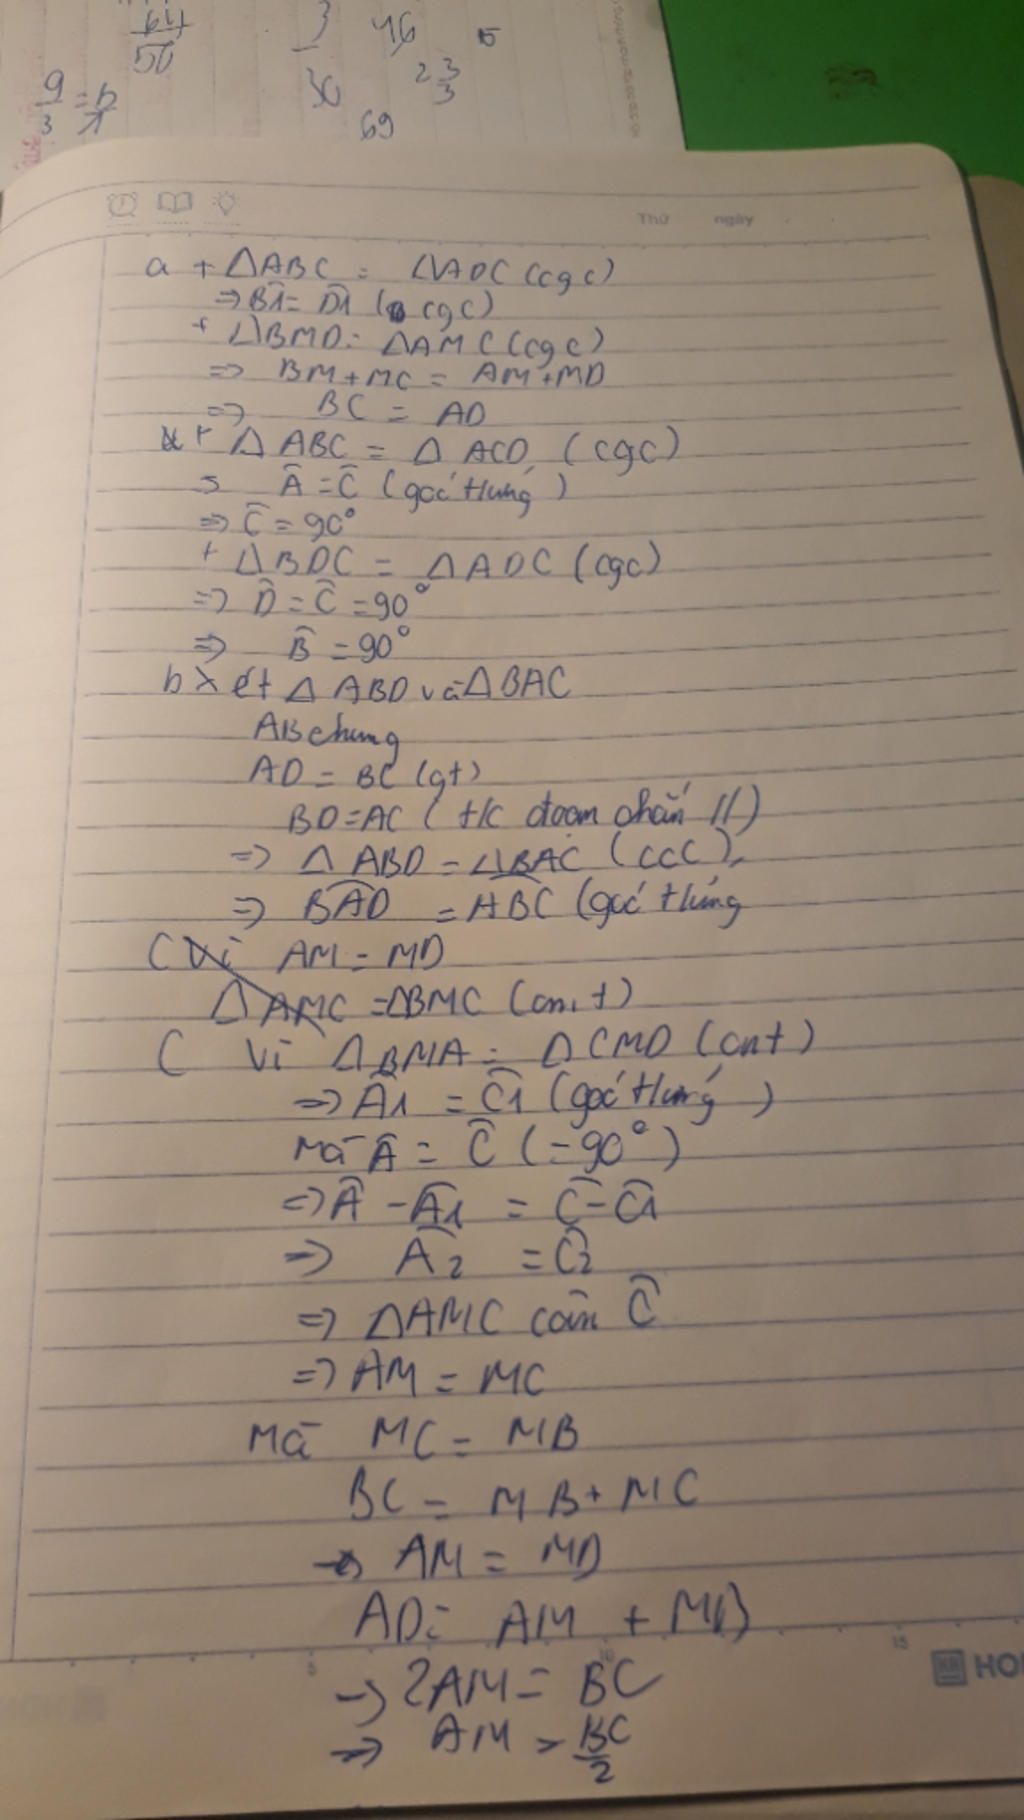 64
50
3
46
5
9
3
=
30
2 3
3
69
Thứ ngày
a + △ABC = △ADC (cgc)
⇒ B̂1 = D̂1 ( cgc)
+ △BMD = △AMC (cgc)
⇒ BM + MC = AM + MD
⇒ BC = AD
+ △ABC = △ACD (cgc)
⇒ Â = Ĉ (góc tứng)
⇒ Ĉ = 90°
+ △BDC = △ADC (cgc)
⇒ D̂ = Ĉ = 90°
⇒ B̂ = 90°
b Xét △ABD và △BAC
AB chung
AD = BC (gt)
BD = AC ( t/c đoạn chắn //)
⇒ △ABD = △BAC (ccc),
⇒ BAD = ABC (góc tứng
C Vì AM = MD
△AMC = △BMC (cm.t)
C Vì △BMA = △CMD (cmt)
⇒ Â1 = Ĉ1 (góc tứng)
Mà Â = Ĉ (=90°)
⇒ Â - Â1 = Ĉ - Ĉ1
⇒ Â2 = Ĉ2
⇒ △AMC cân Ĉ
⇒ AM = MC
Mà MC = MB
BC = MB + MC
⇒ AM = MD
AD = AM + MD
⇒ 2AM = BC
⇒ AM = BC/2
5 10 15
KR HO